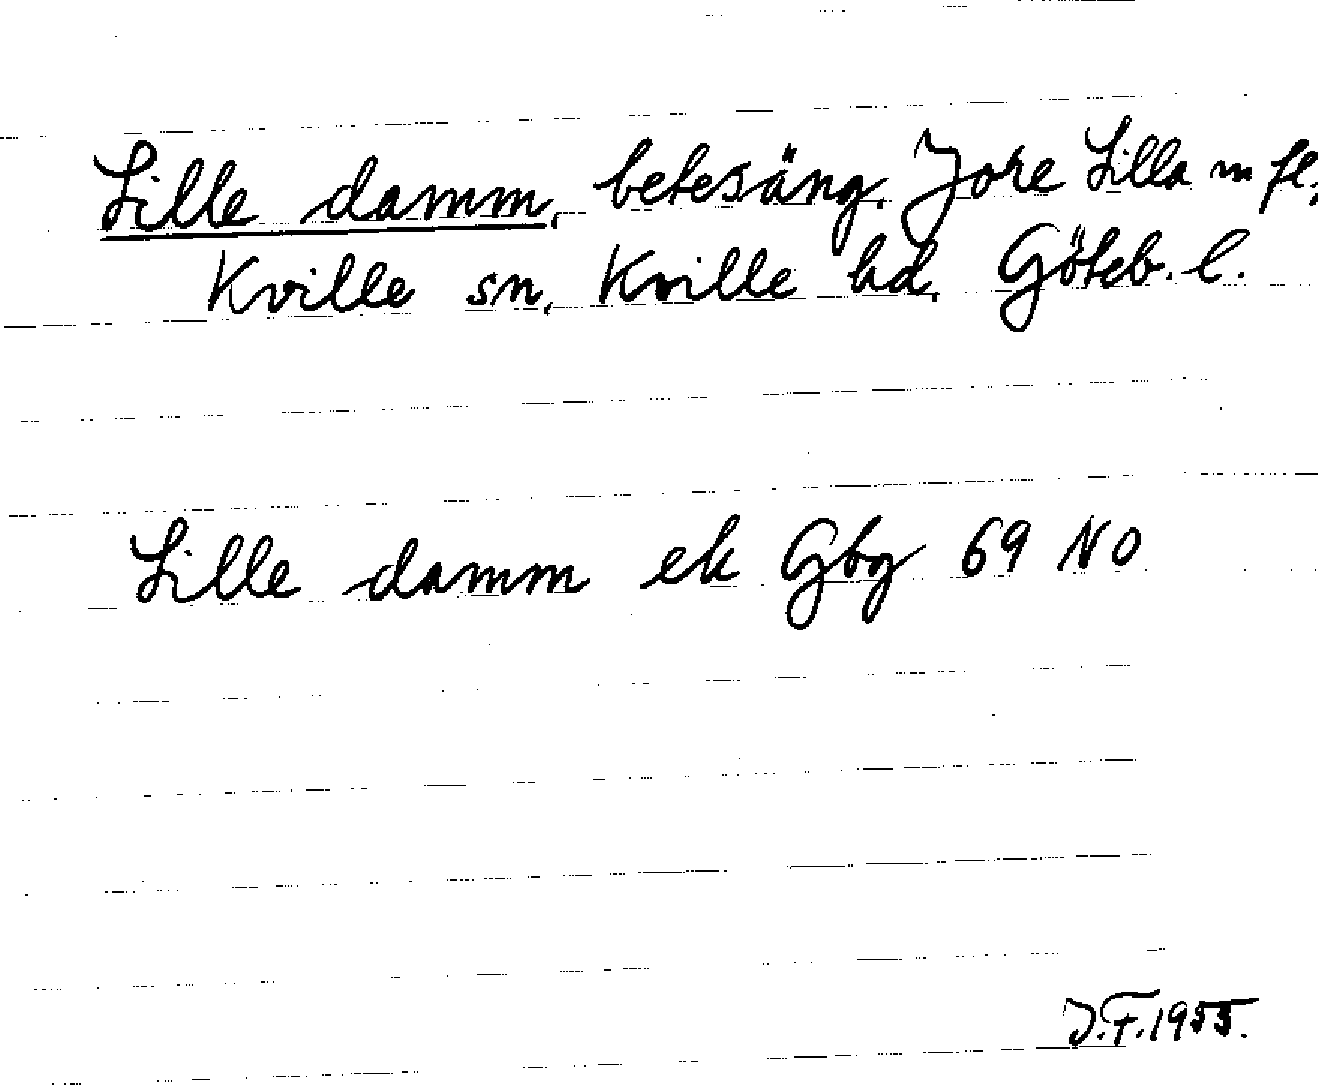 Lille damm, betesäng. Jore Lilla m fl,
Kville sn, Kville hd, Göteb. l.
Lille damm ek Gbg 69 NO
J.F. 1955.